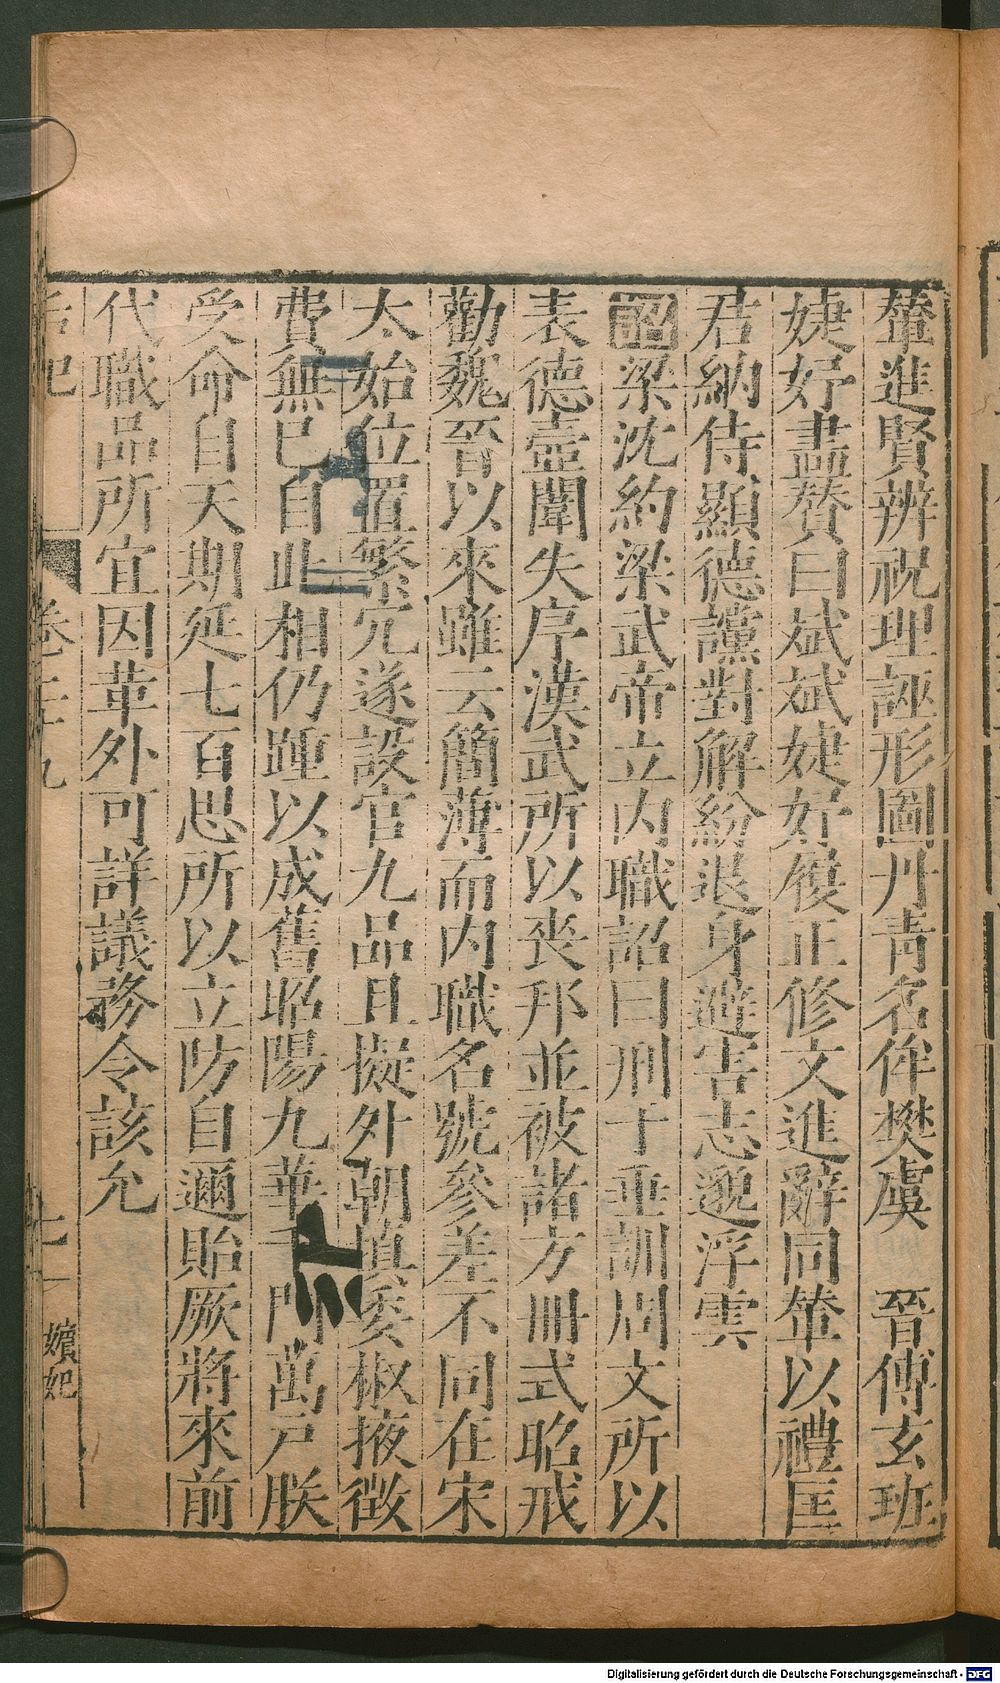 輦進賢辨祝理誣形圖丹靑名侔樊虞　晉傅玄班
婕妤畫贊曰斌斌婕妤履正修文進辭同輦以禮匡
君納侍顯德讜對解紛退身避害志邈浮雲
詔梁沈約梁武帝立內職詔曰刑于垂訓周文所以
表德壼闈失序漢武所以喪邦並被諸方冊式昭戒
勸魏晉以來雖云簡薄而內職名號參差不同在宋
太始位置繁冗遂設官九品且擬外朝填委椒掖徵
費無已自此相仍踵以成舊昭陽九華千門萬戶朕
受命自天期延七百思所以立防自邇貽厥將來前
代職品所宜因革外可詳議務令該允
后妃
卷二十九
七
嬪妃
Digitalisierung gefördert durch die Deutsche Forschungsgemeinschaft - DFG